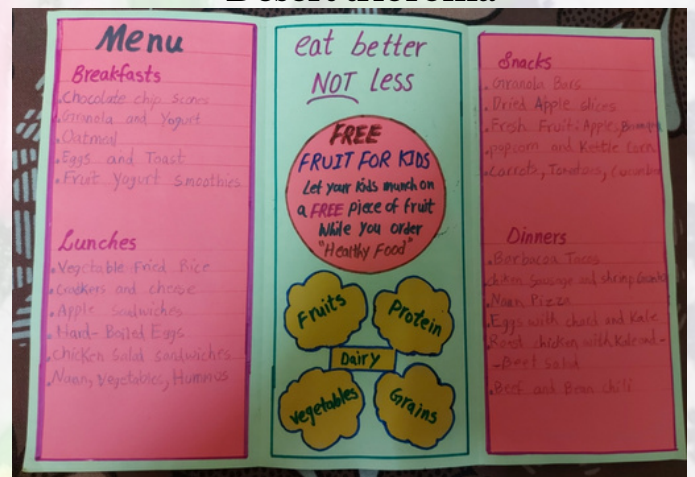 Menu
Breakfasts
. Chocolate chip Scones
. Granola and Yogurt
. Oatmeal
. Eggs and Toast
. Fruit Yogurt Smoothies
Lunches
. Vegetable Fried Rice
. Crackers and cheese
. Apple
. Hard-Boiled Eggs
. Chicken Salad Sandwiches
. Nann, Vegetables, Hummus
eat better
NOT Less
FREE
FRUIT FOR KIDS
Let your kids munch on
a FREE piece of fruit
While You order
"Healthy Food"
Fruits
Protein
Dairy
Vegetables
Grains
Snacks
. Granola Bars
. Dried Apple slices
. Fresh Fruit: Apple,
. popcorn and Kettle Corn
. Carrots, Tomatoes,
Dinners
. Barbacoa Tacos
. Sausage and shrimp
. Naan Pizza
. Eggs with chard and Kale
. Roast chicken with Kale and-
-Beet salad
. Beef and Bean chili